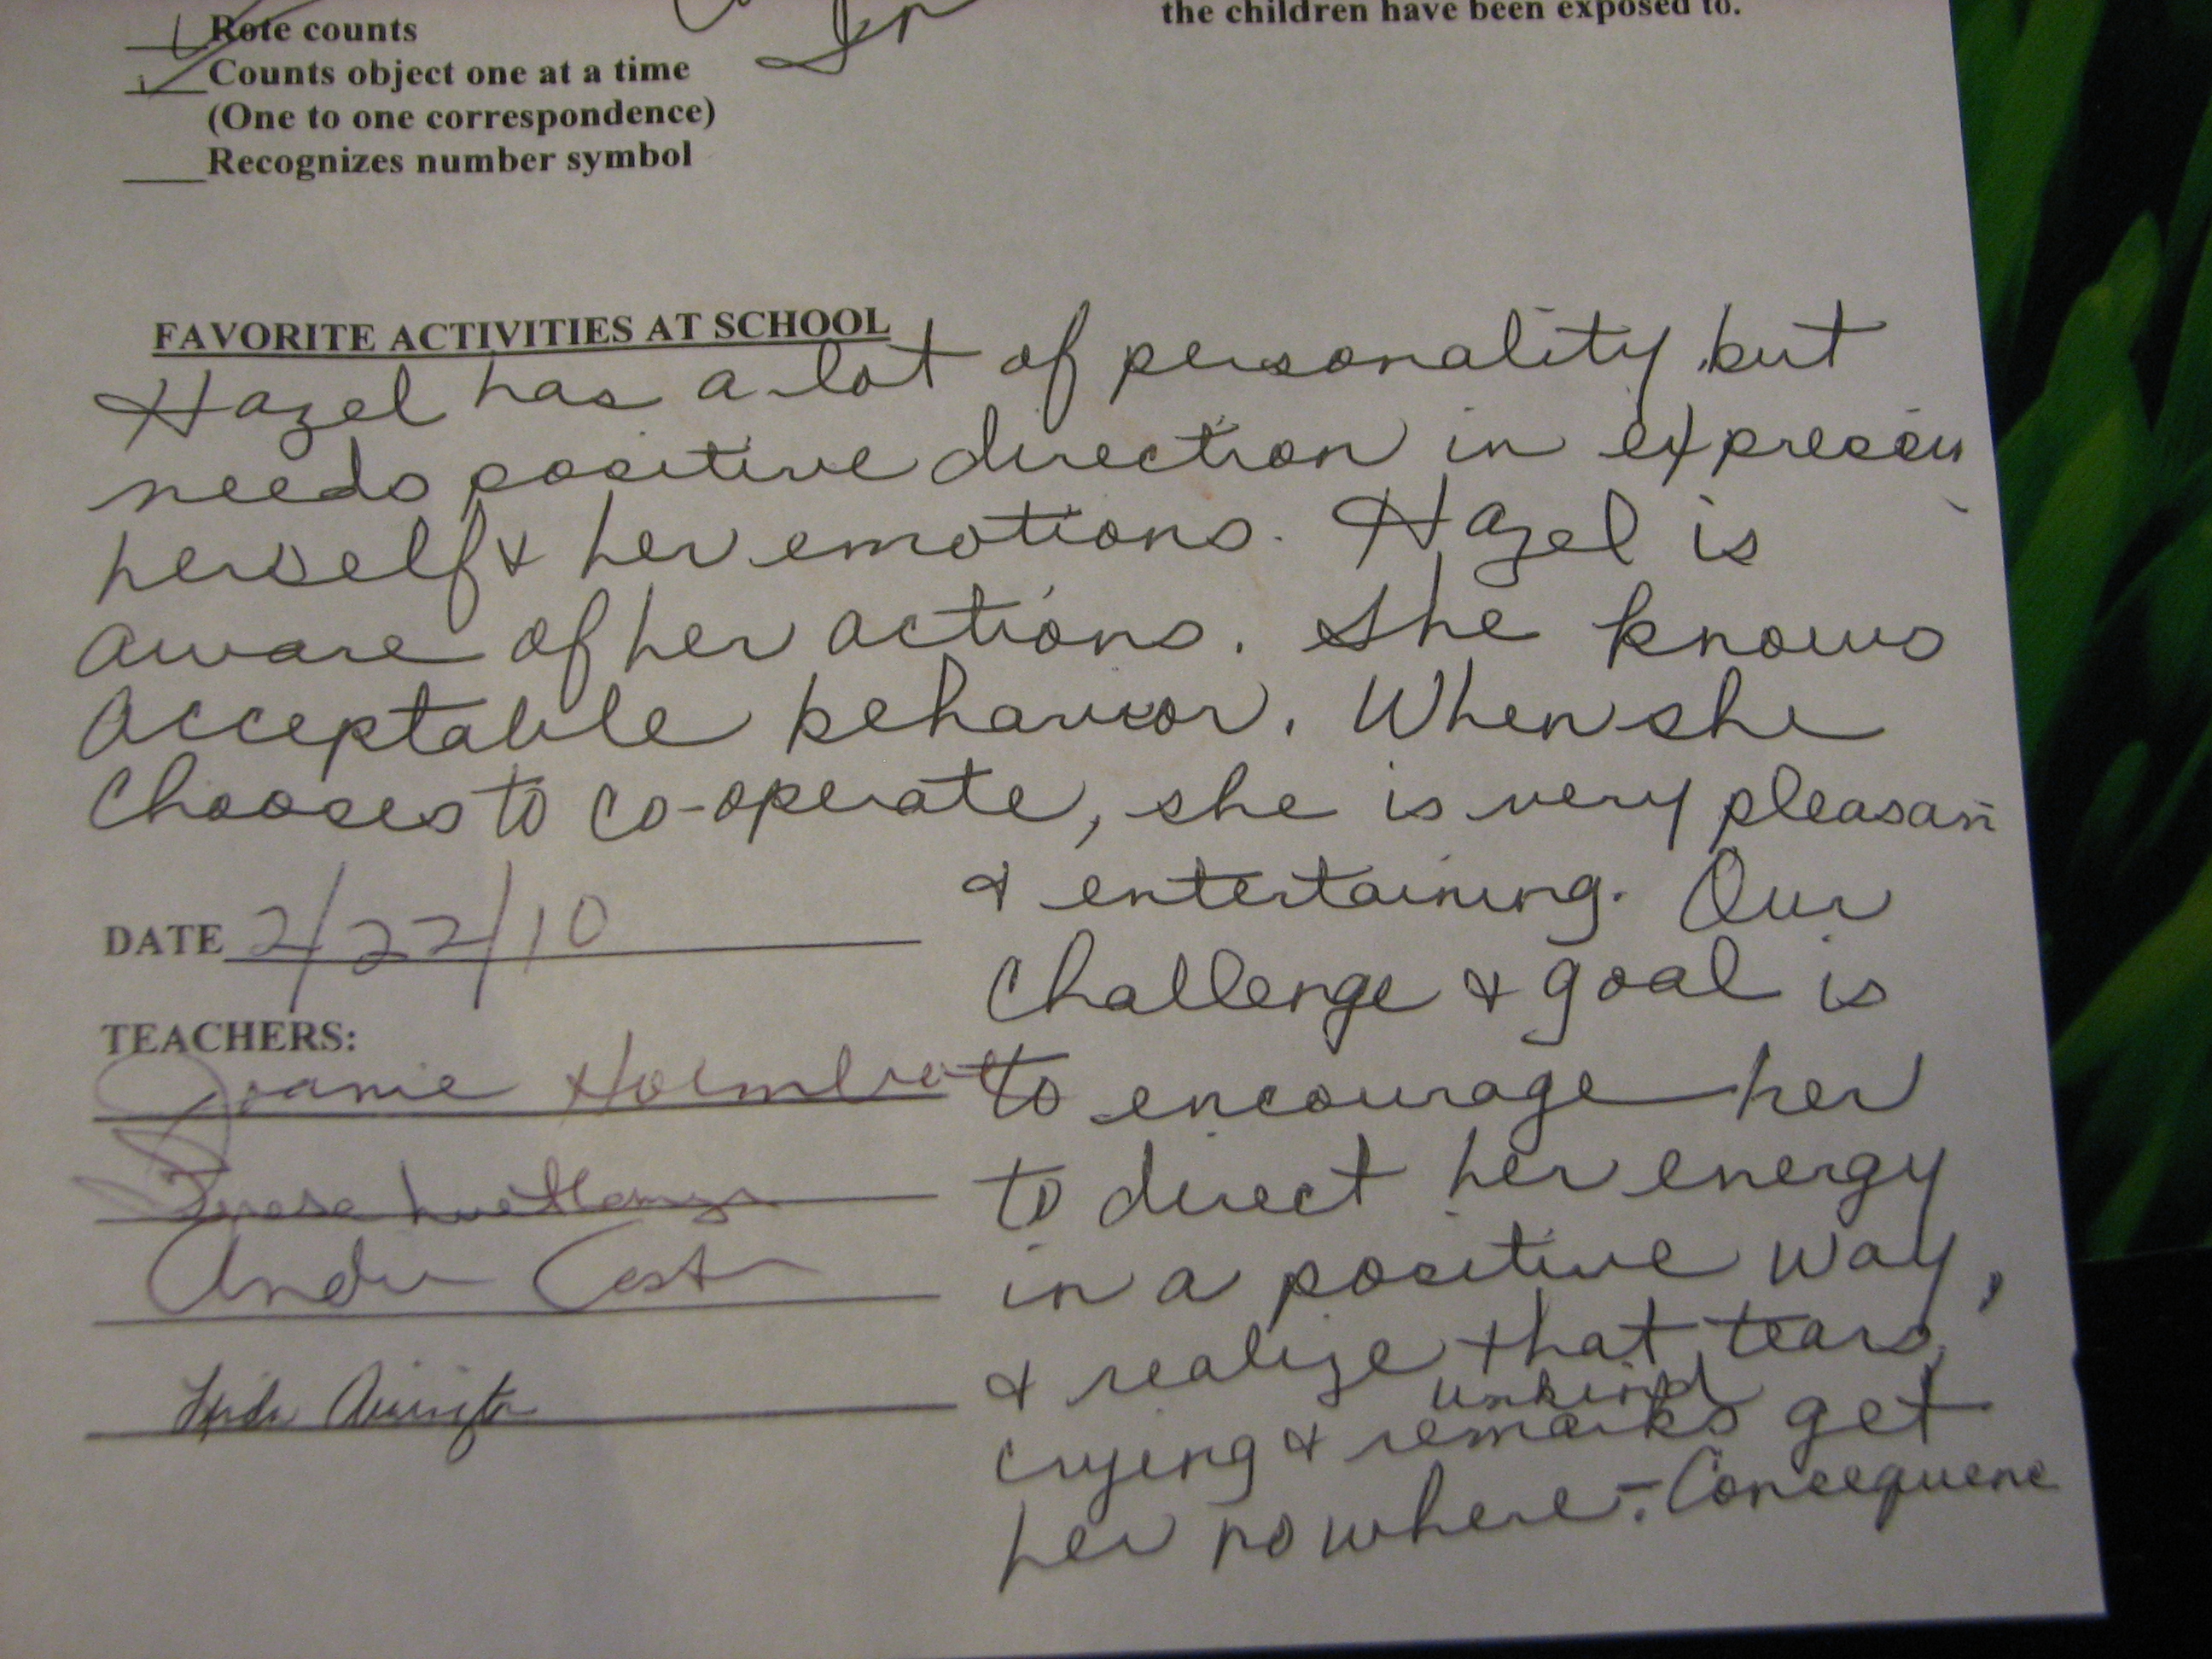 the children have been exposed to.
Rote counts
Counts object one at a time
(One to one correspondence)
Recognizes number symbol
FAVORITE ACTIVITIES AT SCHOOL
Hazel has a lot of personality but
needs positive direction in expressin
herself & her emotions. Hazel is
aware of her actions. She knows
acceptable behavior. When she
chooses to co-operate, she is very pleasan
& entertaining. Our
challenge & goal is
to encourage her
to direct her energy
in a positive way,
& realize that tears,
crying & unkind remarks get
her nowhere. Consequenc
DATE 2/22/10
TEACHERS:
Joanie
Teresa
Linda Arrington